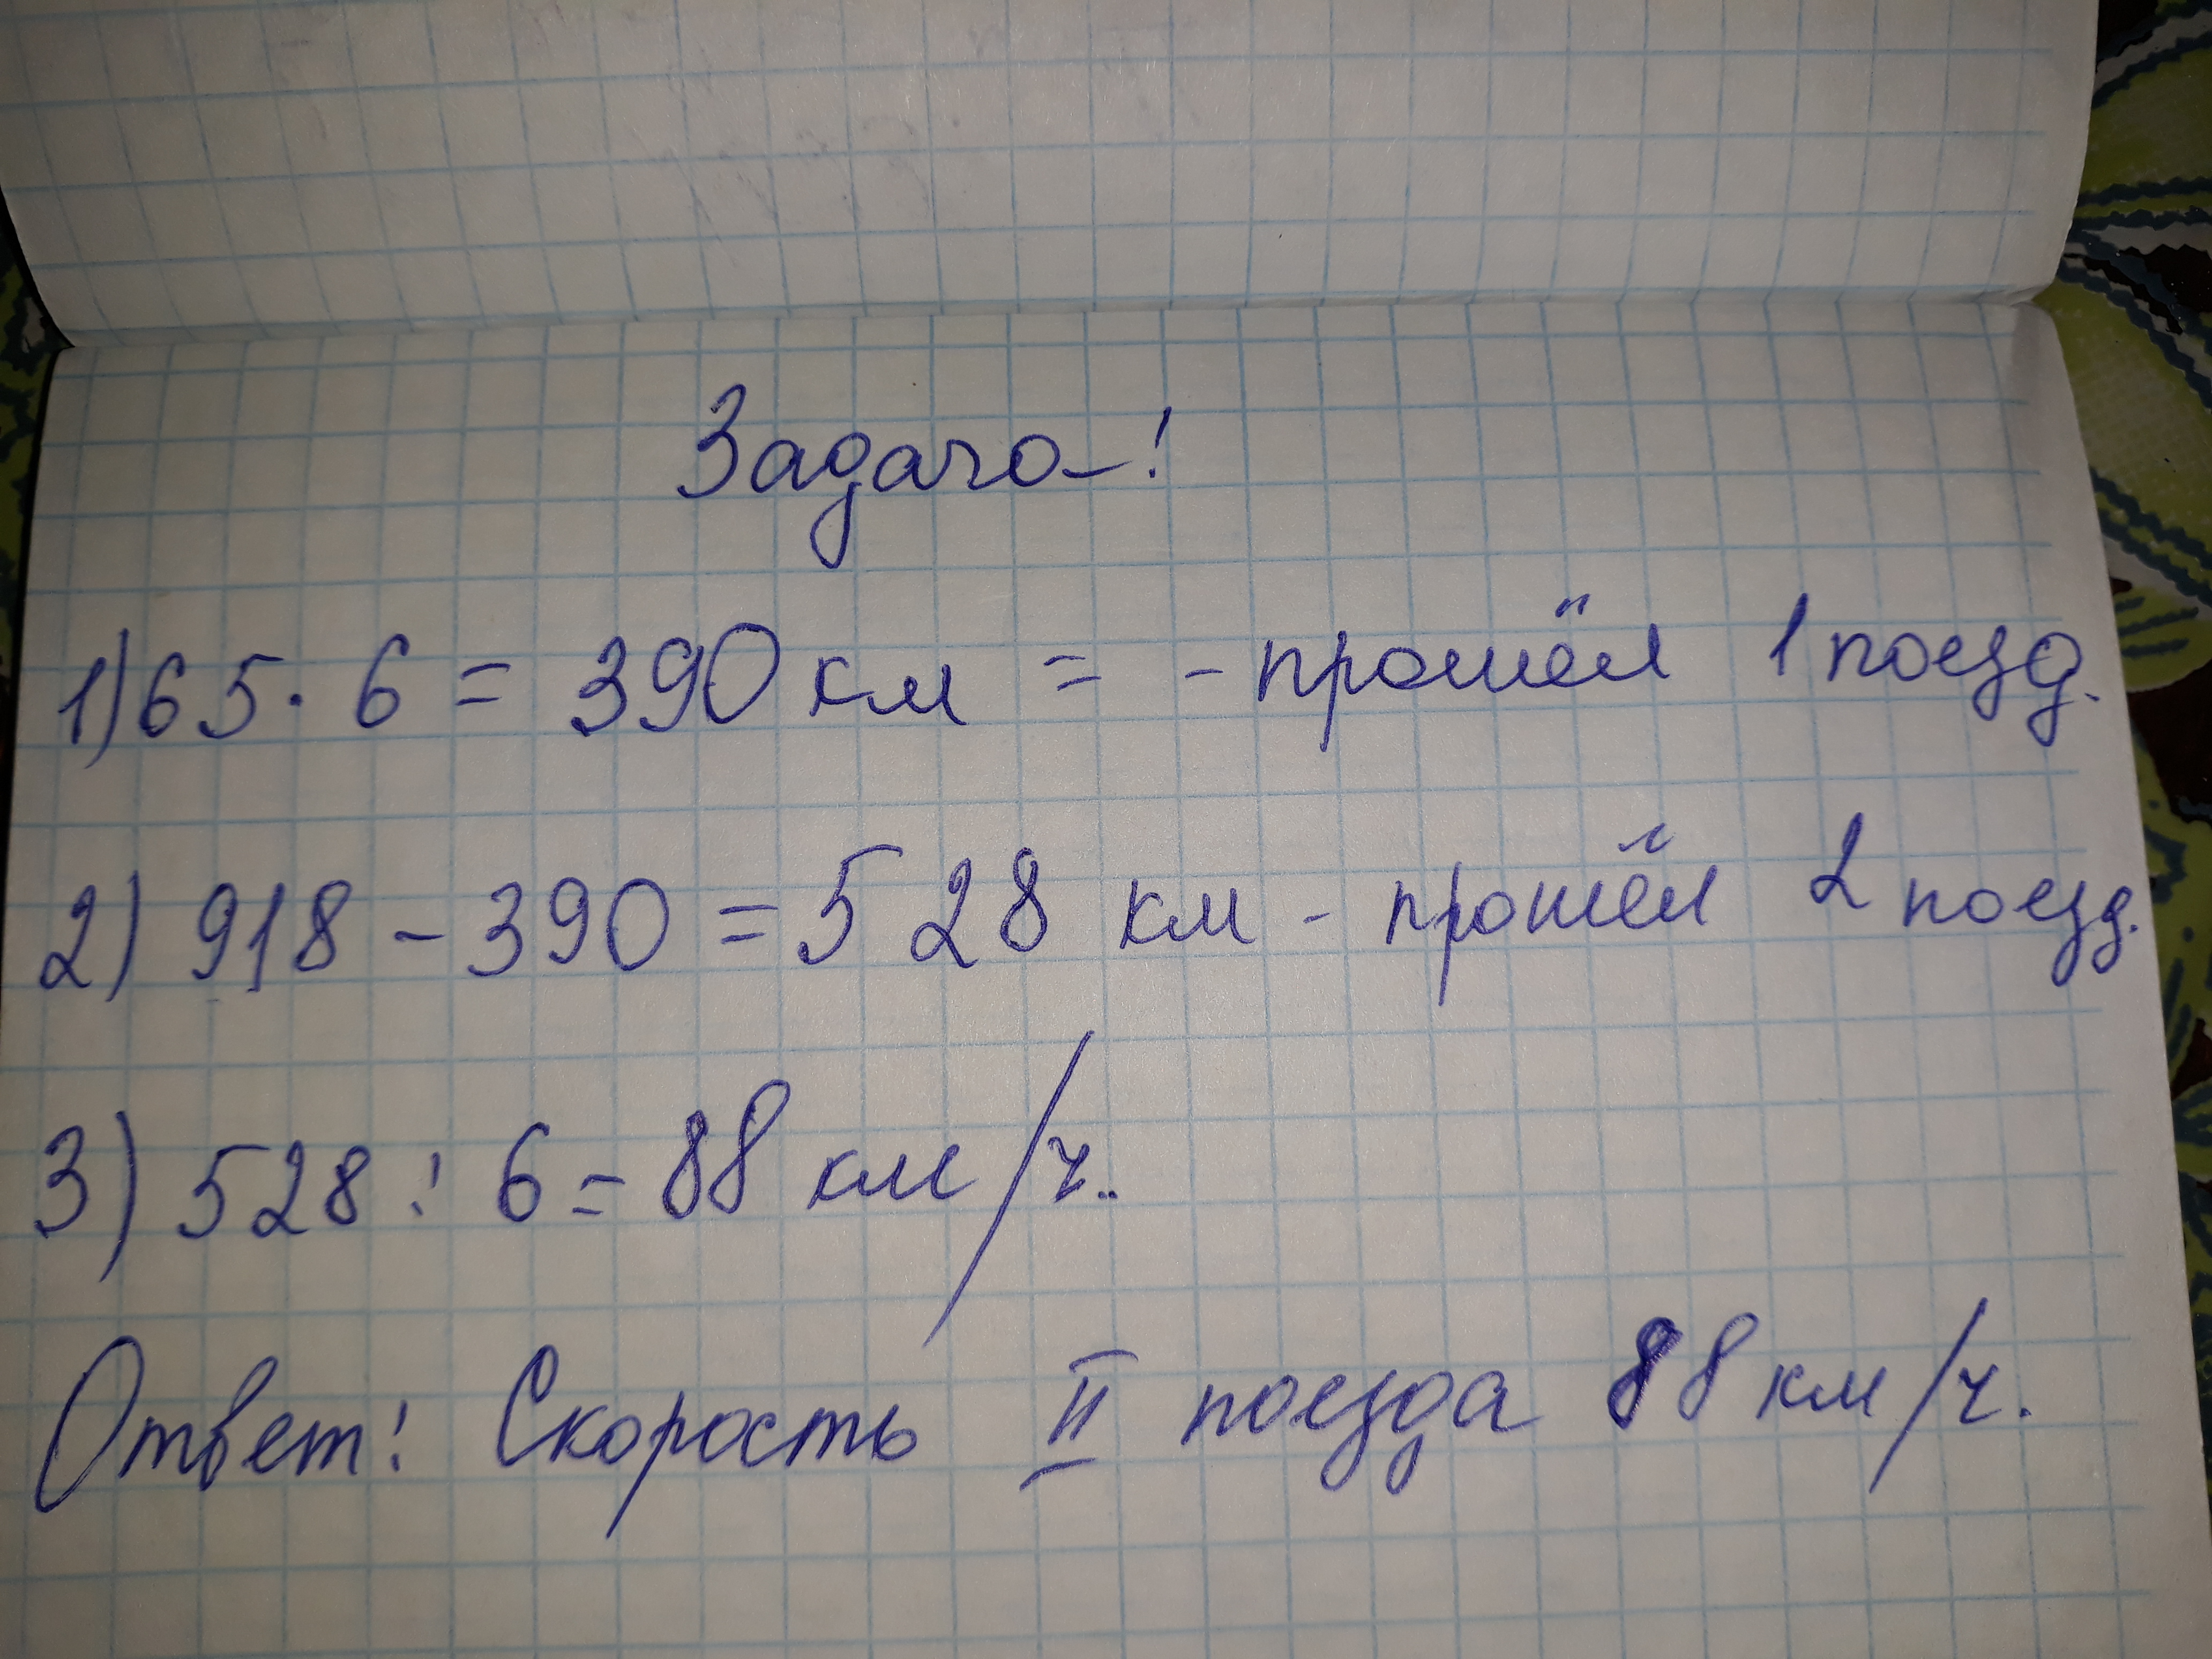 Задача!
1) 65 · 6 = 390 км = - прошёл 1 поезд.
2) 918 - 390 = 528 км - прошёл 2 поезд.
3) 528 : 6 = 88 км/ч..
Ответ: Скорость II поезда 88 км/ч.